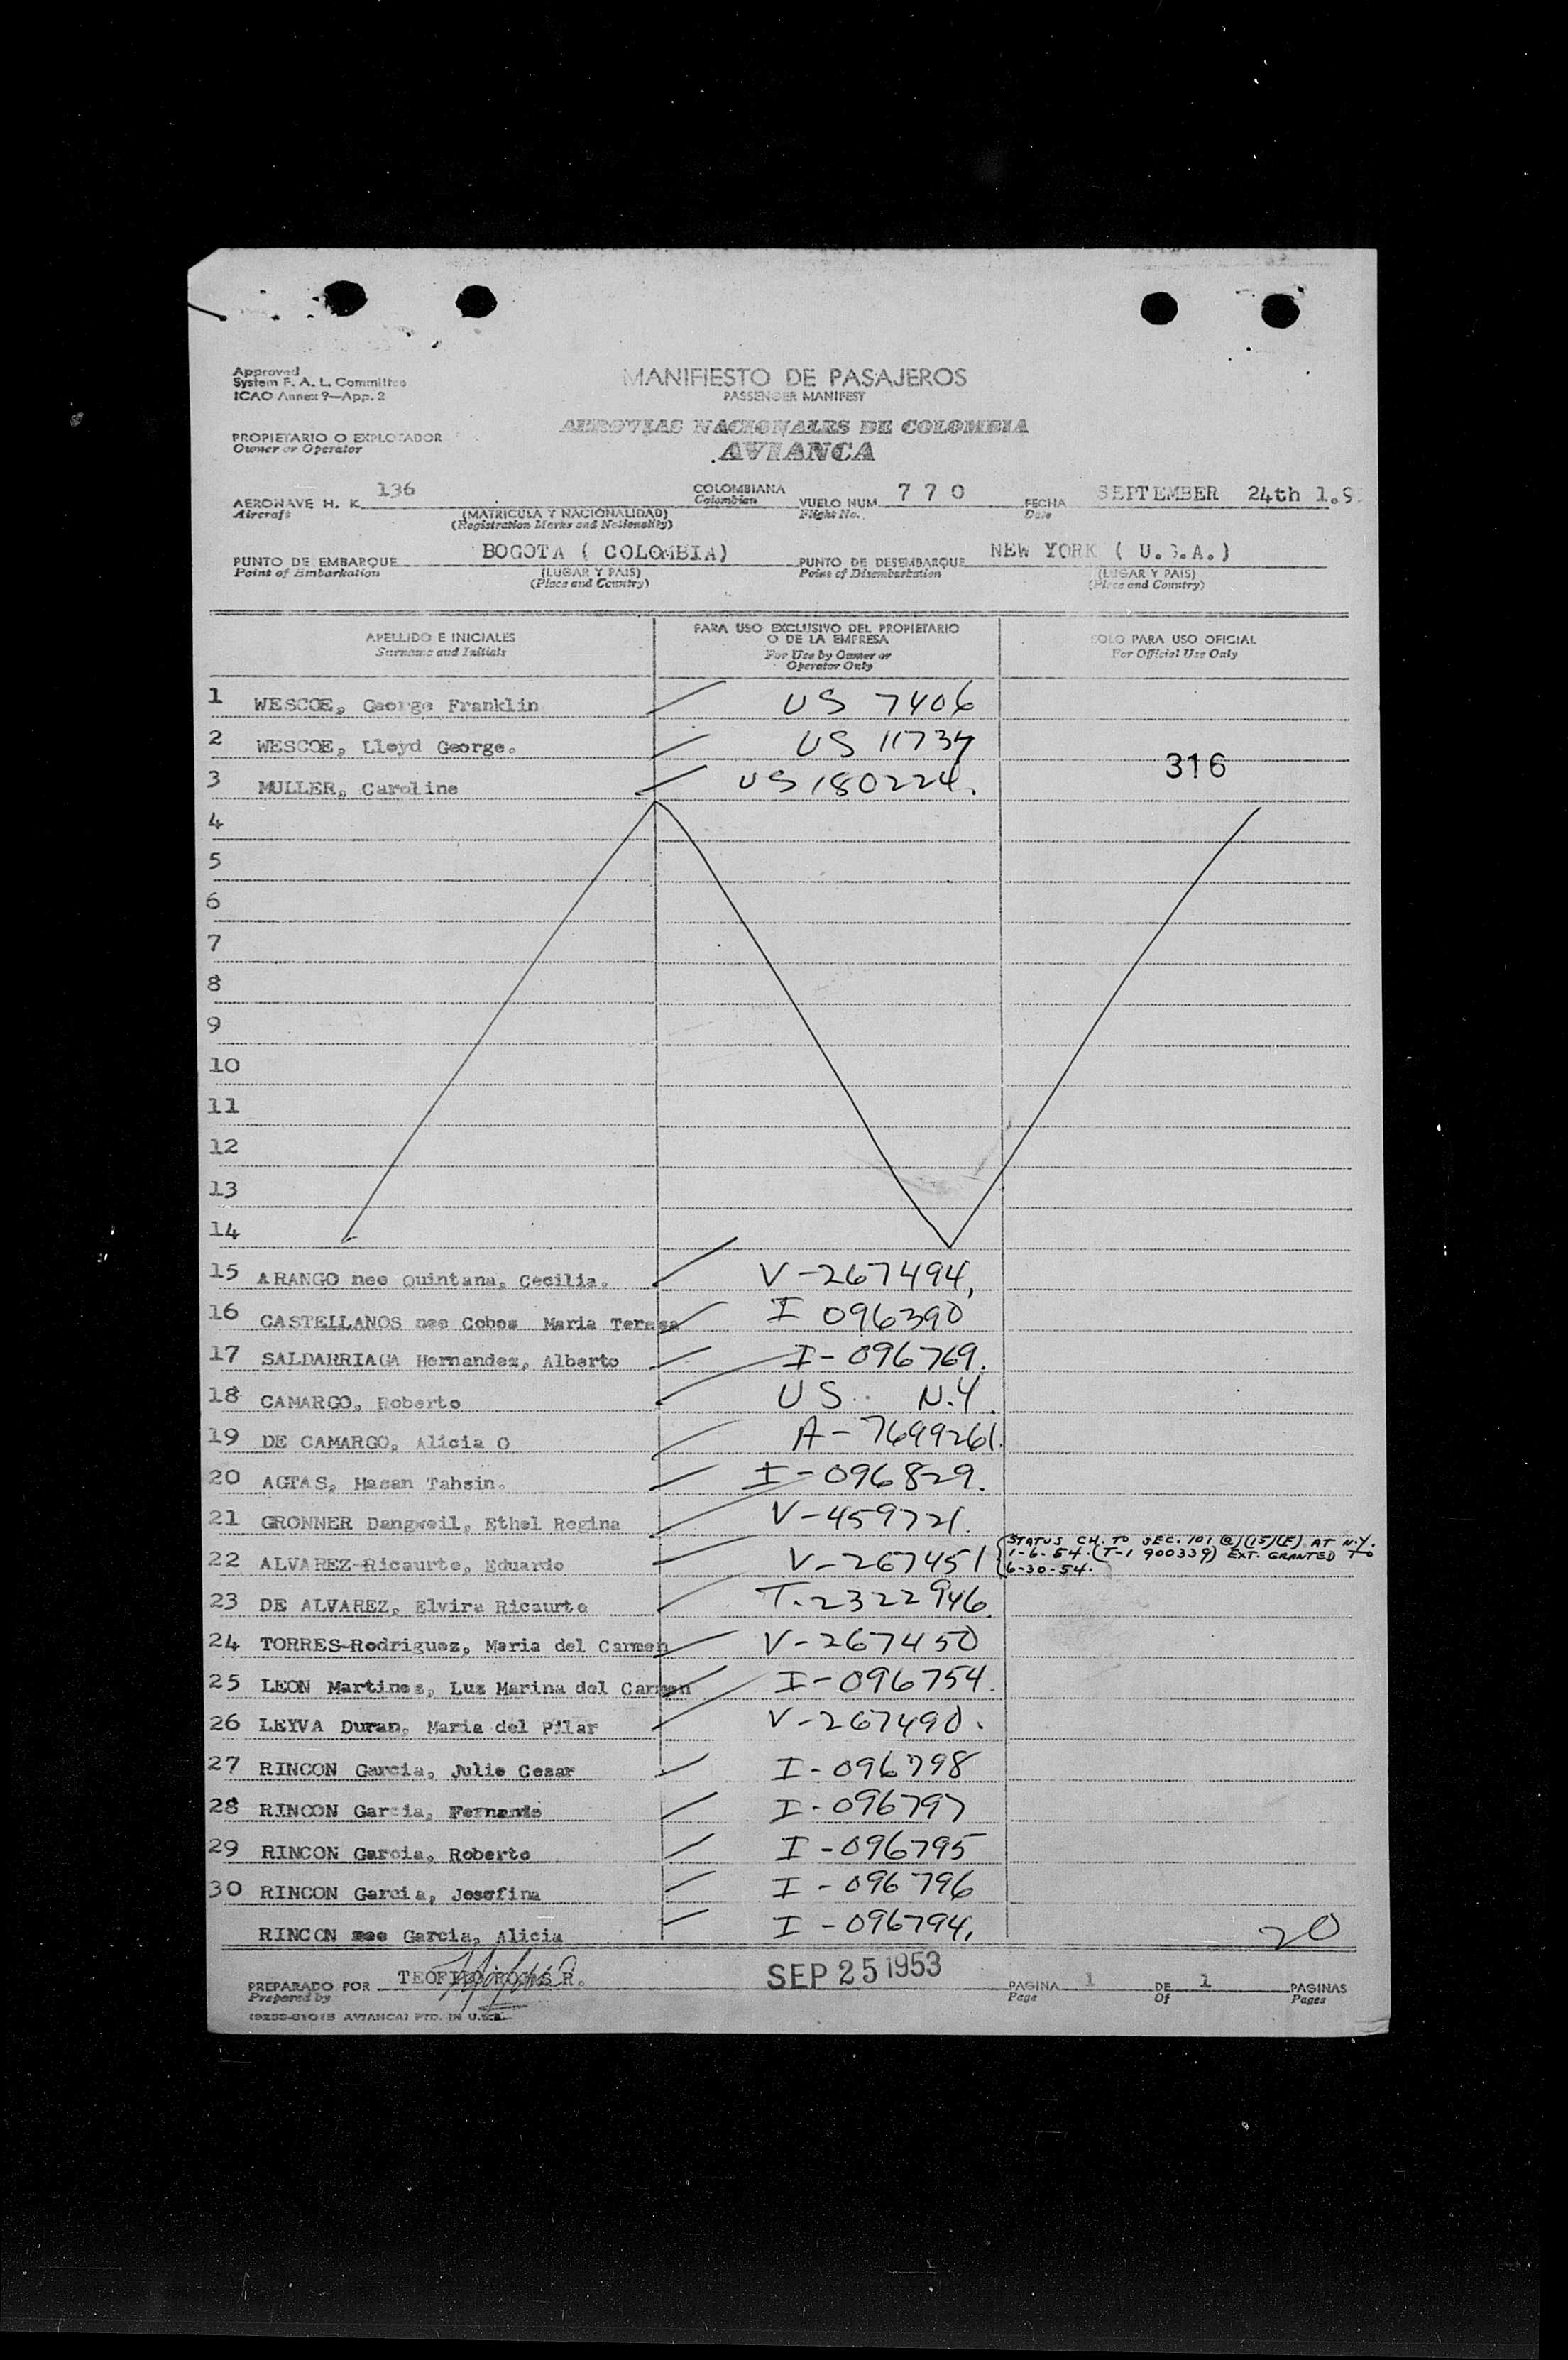 Approved
System F. A. L. Committee
ICAO Annex 9—App. 2
MANIFIESTO DE PASAJEROS
PASSENGER MANIFEST
PROPIETARIO O EXPLOTADOR
Owner or Operator
AEROVIAS NACIONALES DE COLOMBIA
AVIANCA
AERONAVE H. K. 136 COLOMBIANA VUELO NUM 7 7 0 FECHA SEPTEMBER 24th 1.95
Aircraft (MATRICULA Y NACIONALIDAD) Colombian Flight No. Date
(Registration Marks and Nationality)
PUNTO DE EMBARQUE BOGOTA ( COLOMBIA) PUNTO DE DESEMBARQUE NEW YORK ( U.S.A.)
Point of Embarkation (LUGAR Y PAIS) Point of Disembarkation (LUGAR Y PAIS)
(Place and Country) (Place and Country)
APELLIDO E INICIALES PARA USO EXCLUSIVO DEL PROPIETARIO O DE LA EMPRESA SOLO PARA USO OFICIAL
Surname and Initials For Use by Owner or Operator Only For Official Use Only
1 WESCOE, George Franklin US 7406
2 WESCOE, Lloyd George. US 11737
3 MULLER, Caroline US 180224. 316
4
5
6
7
8
9
10
11
12
13
14
15 ARANGO nee Quintana, Cecilia. V-267494,
16 CASTELLANOS nee Cobos Maria Teresa I 096390
17 SALDARRIAGA Hernandez, Alberto I-096769.
18 CAMARGO, Roberto US.. N.Y.
19 DE CAMARGO, Alicia O A-7699261.
20 AGTAS, Hasan Tahsin. I-096829.
21 GRONNER Dangweil, Ethel Regina V-459721.
22 ALVAREZ-Ricaurte, Eduardo V-267451 STATUS CH. TO SEC. 101 (a)(15)(F) AT N.Y.
1-6-54. (T-1 900339) EXT. GRANTED TO
6-30-54.
23 DE ALVAREZ, Elvira Ricaurte T-2322946.
24 TORRES-Rodriguez, Maria del Carmen V-267450
25 LEON Martinez, Luz Marina del Carmen I-096754.
26 LEYVA Duran, Maria del Pilar V-267490.
27 RINCON Garcia, Julio Cesar I-096798
28 RINCON Garcia, Fernando I-096797
29 RINCON Garcia, Roberto I-096795
30 RINCON Garcia, Josefina I-096796
RINCON nee Garcia, Alicia I-096794, 20
PREPARADO POR TEOFILO ROJAS R. SEP 25 1953 PAGINA 1 DE 1 PAGINAS
Prepared by Page Of Pages
AVIANCA) PTD. IN U.S.A.